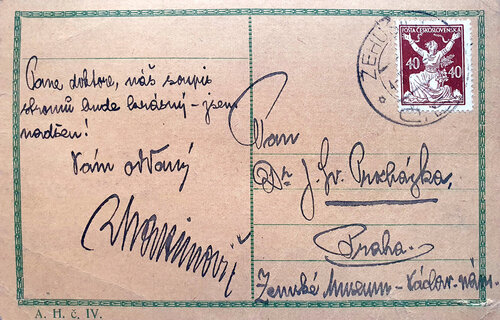 Pane doktore, náš soupis
stromů bude krásný – jsem
nadšen!
Vám oddaný
Pan
Dr. J. Sv. Procházka,
Praha.
Zemské Museum – Václav. nám.
POŠTA ČESKOSLOVENSKÁ
40 40
A. H. č. IV.